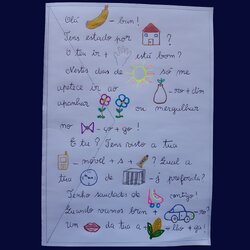 Olá - bem!
Tens estado por ?
O teu ir + está bom?
Nestes dias de só me
apetece ir ao - ro + dim
apanhar ou mergulhar
no - ço + go!
E tu? Tens visto a tua
- móvel + s + ? Qual a
tua de - j preferida?
Tenho saudades de contigo.
Quando vamos bem + - ro?
Um da tua a + lho + ga!